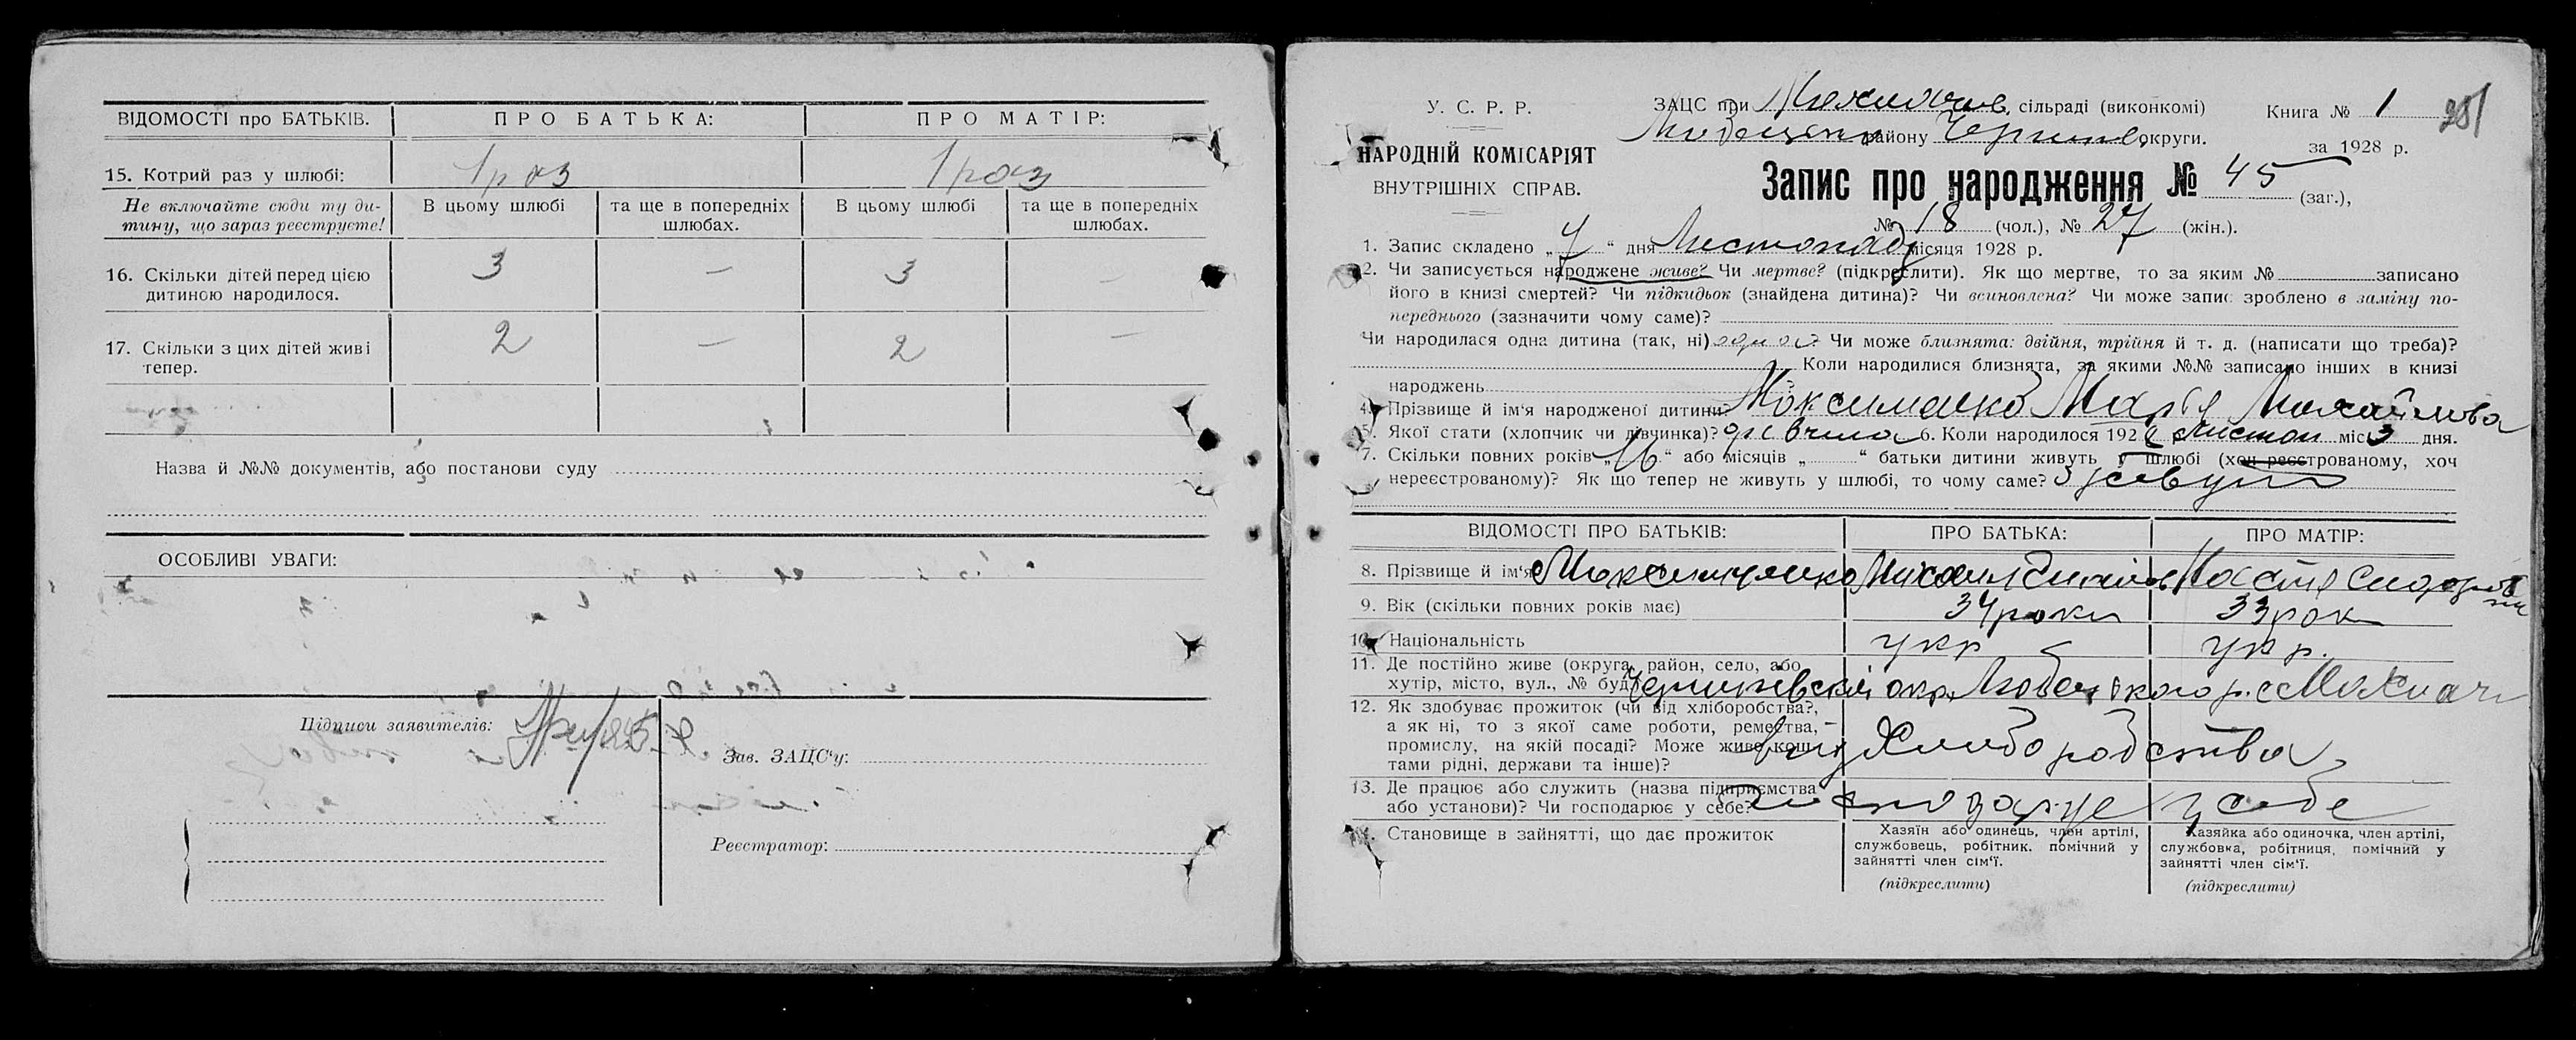 ВІДОМОСТІ про БАТЬКІВ. ПРО БАТЬКА: ПРО МАТІР:
15. Котрий раз у шлюбі: 1 раз 1 раз
Не включайте сюди ту ди-
тину, що зараз реєструєте!
В цьому шлюбі та ще в попередніх шлюбах. В цьому шлюбі та ще в попередніх шлюбах.
16. Скільки дітей перед цією 3 — 3 —
дитиною народилося.
17. Скільки з цих дітей живі 2 — 2 —
тепер.
Назва й №№ документів, або постанови суду
ОСОБЛИВІ УВАГИ:
Підписи заявителів:
Зав. ЗАЦС'у:
Реєстратор:
У. С. Р. Р.
НАРОДНІЙ КОМІСАРІЯТ
ВНУТРІШНІХ СПРАВ.
ЗАЦС при сільраді (виконкомі)
району округи.
Книга № 1
за 1928 р.
Запис про народження № 45 (заг.),
№ 18 (чол.), № 27 (жін.).
1. Запис складено „ “ дня Листопад місяця 1928 р.
2. Чи записується народжене живе? Чи мертве? (підкреслити). Як що мертве, то за яким № записано
його в книзі смертей? Чи підкидьок (знайдена дитина)? Чи всиновлена? Чи може запис зроблено в заміну по-
переднього (зазначити чому саме)?
Чи народилася одна дитина (так, ні) одна Чи може близнята: двійня, трійня й т. д. (написати що треба)?
Коли народилися близнята, за якими №№ записано інших в книзі
народжень
4. Прізвище й ім'я народженої дитини? Максименко Мар'я Михайлова
5. Якої стати (хлопчик чи дівчинка)? дівчина 6. Коли народилося 192 р. Листоп міс 3 дня.
7. Скільки повних років „16“ або місяців „ “ батьки дитини живуть у шлюбі (хоч реєстрованому, хоч
нереєстрованому)? Як що тепер не живуть у шлюбі, то чому саме?
ВІДОМОСТІ ПРО БАТЬКІВ: ПРО БАТЬКА: ПРО МАТІР:
8. Прізвище й ім'я Михаил Настя
9. Вік (скільки повних років має) 34 роки 33 рок
10. Національність укр укр.
11. Де постійно живе (округа, район, село, або
хутір, місто, вул., № буд.)
12. Як здобуває прожиток (чи від хліборобства?,
а як ні, то з якої саме роботи, ремества,
промислу, на якій посаді? Може живе кош-
тами рідні, держави та інше)?
13. Де працює або служить (назва підприємства
або установи)? Чи господарює у себе? господарює у себе
14. Становище в зайнятті, що дає прожиток
Хазяїн або одинець, член артілі,
службовець, робітник. помічний у
зайнятті член сім'ї.
(підкреслити)
Хазяйка або одиночка, член артілі,
службовка, робітниця, помічний у
зайнятті член сім'ї.
(підкреслити)